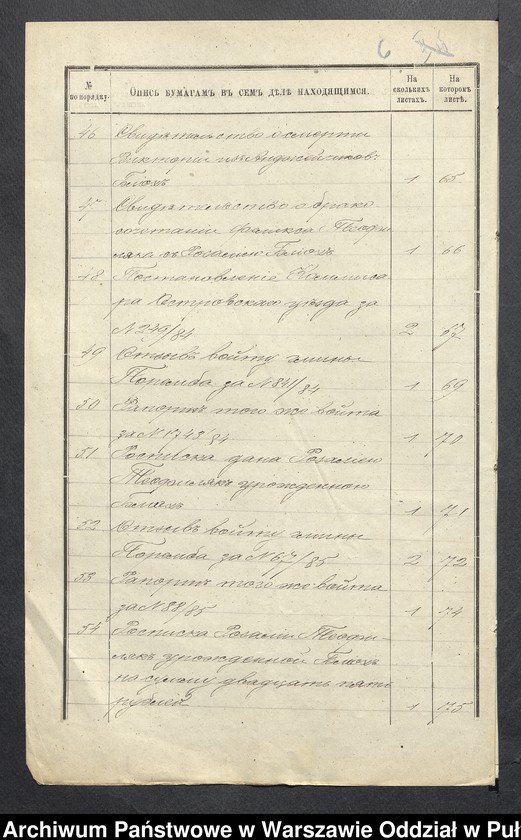 6
№ по порядку.
Опись бумагамъ въ семъ дѣлѣ находящимся.
На сколькихъ листахъ.
На которомъ листѣ.
46 Свидѣтельство о смерти
Викторіи изъ
1 65
47 Свидѣтельство о брако
сочетаніи Феликса Теофи
ляка съ Розаліею
1 66
48. Постановленіе Коммиса
ра Островскаго уѣзда за
№ 249/84 2 67
49 Отзывъ войту гмины
Поремба за № 841/84 1 69
50 Рапортъ того же войта
за № 1743/84 1 70
51 Росписка дана Розаліею
Теофилякъ урожденною
1 71
52 Отзывъ войту гмины
Поремба за № 67/85 2 72
53 Рапортъ того же войта
за № 88/85 1 74
54 Росписка Розаліи Теофи
лякъ урожденной
на сумму двадцать пять
рублей 1 75
Archiwum Państwowe w Warszawie Oddział w Puł